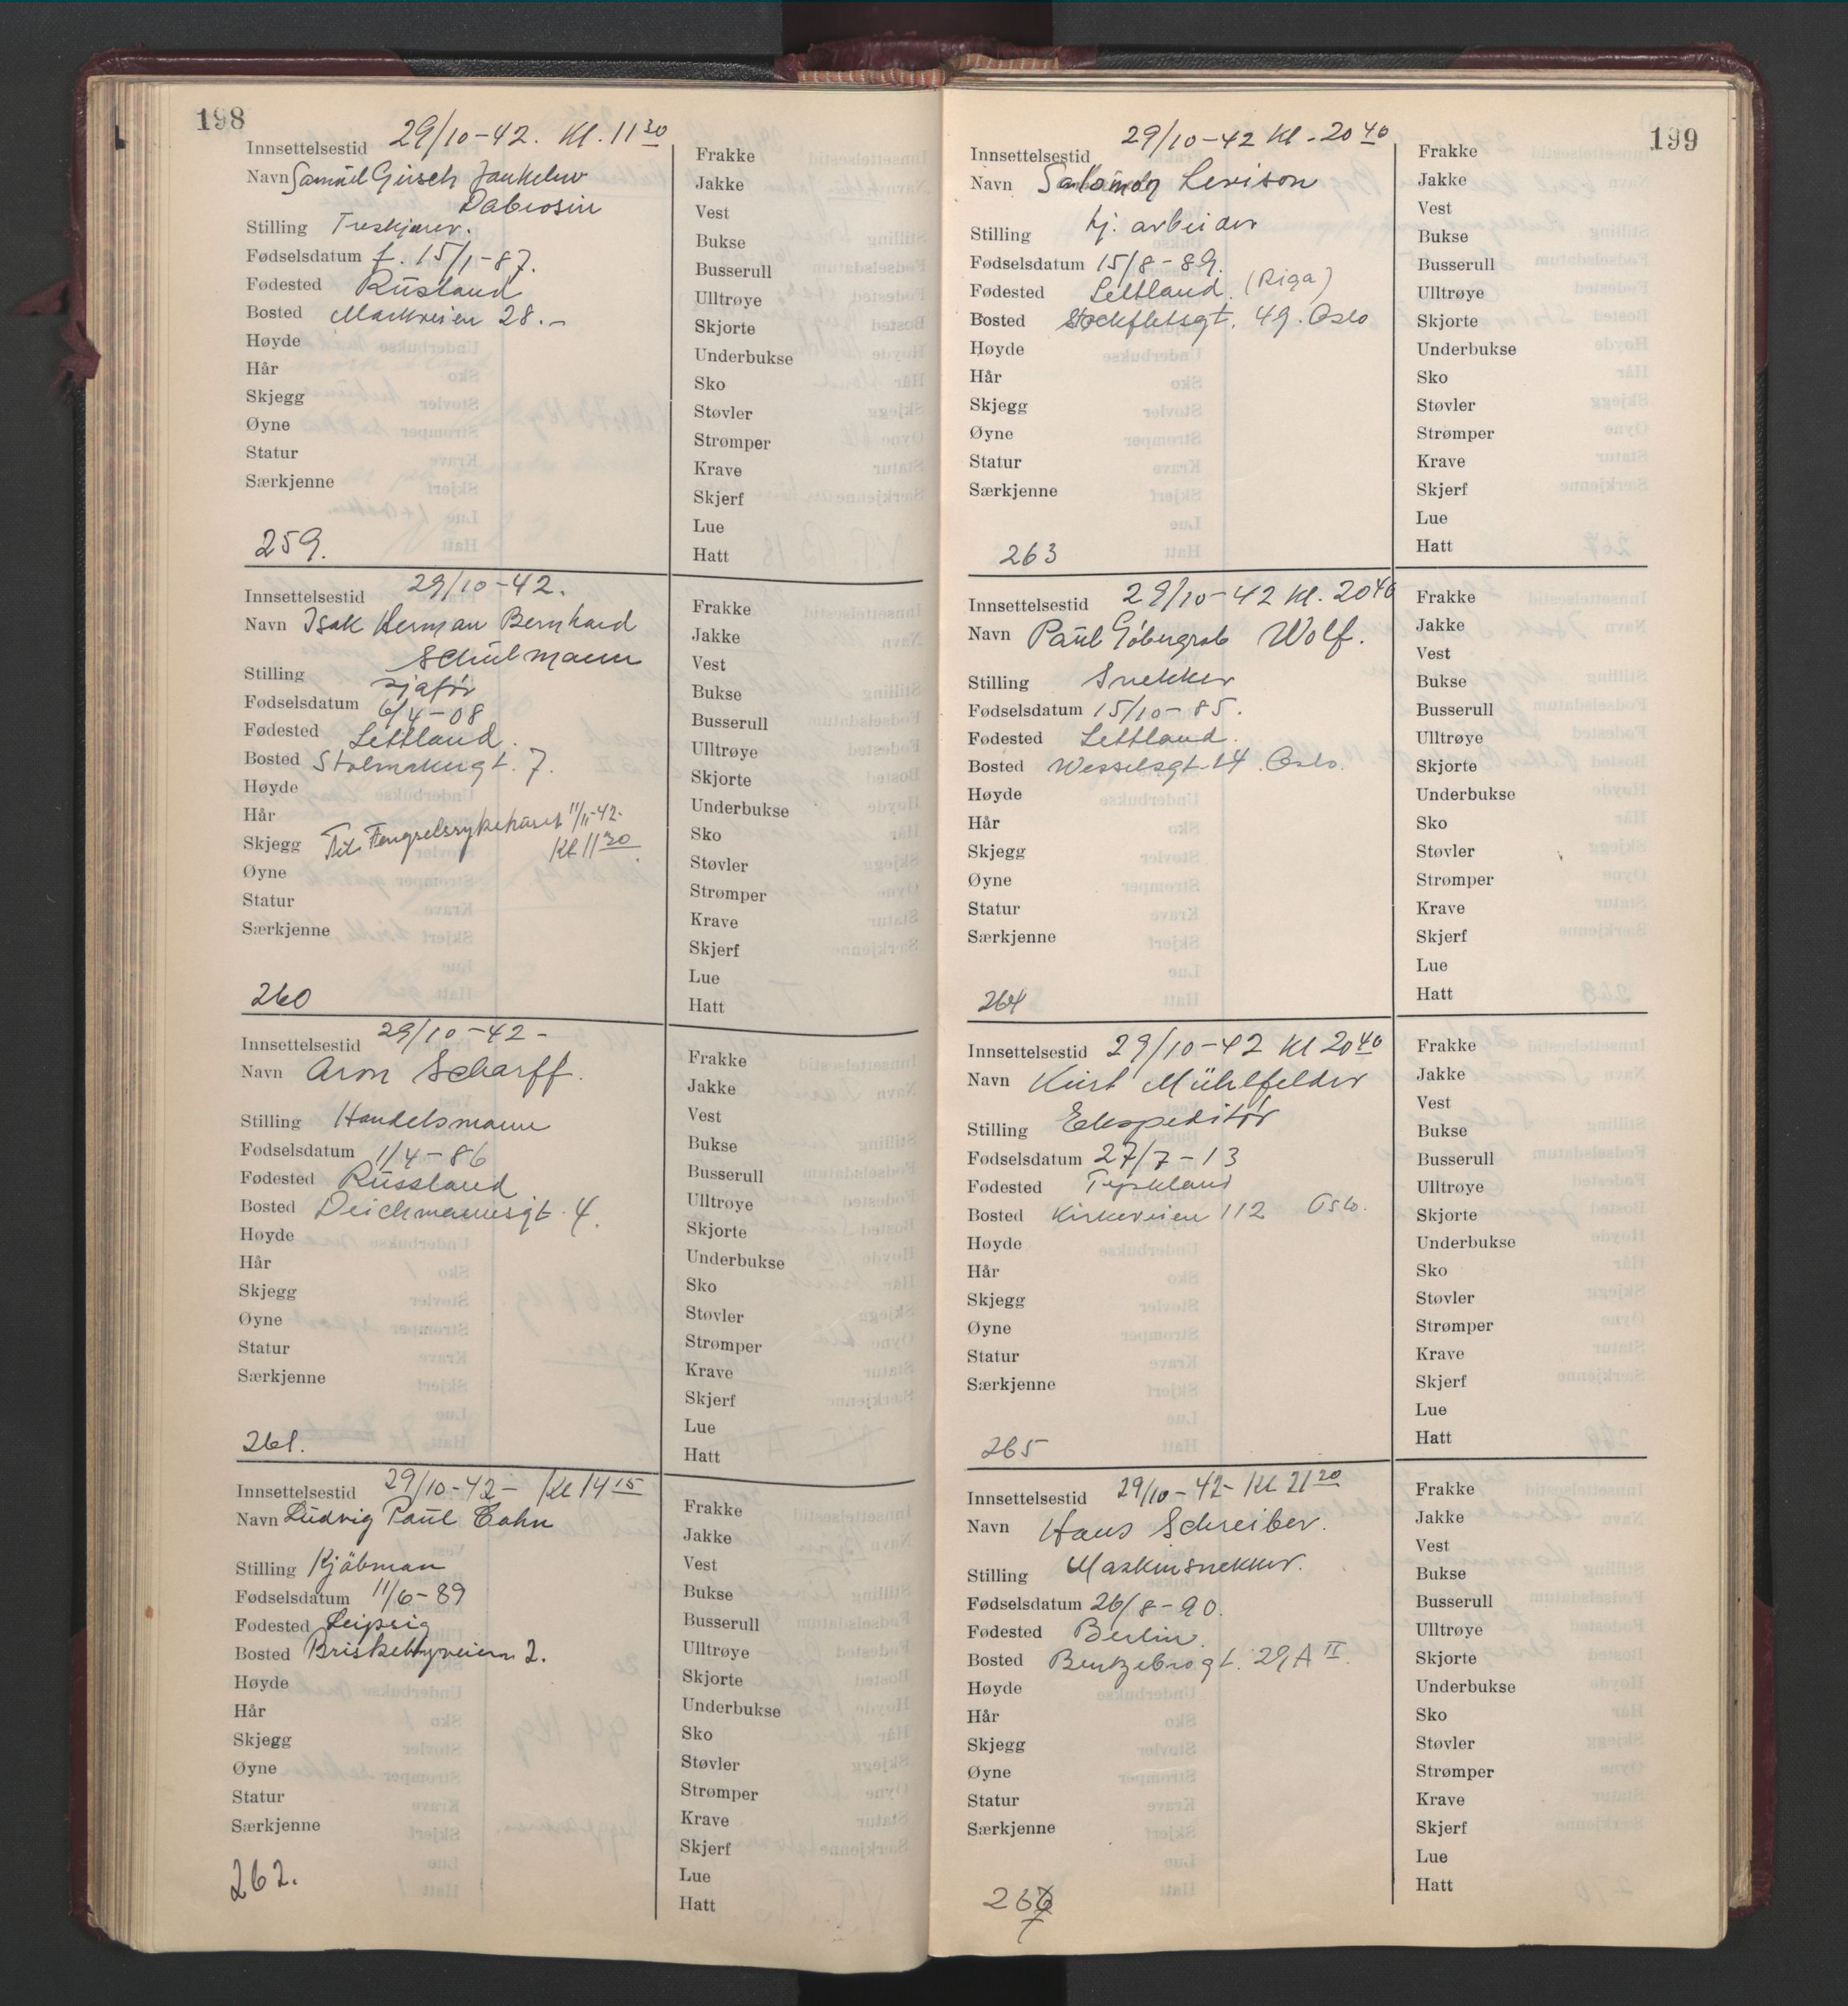 198
Innsettelsestid 29/10-42. Kl. 11 30
Navn Samuel Girsch Jankelow
Dabrosin
Stilling Treskjærer.
Fødselsdatum f. 15/1-87.
Fødested Russland
Bosted Markveien 28.-
Høyde
Hår
Skjegg
Øyne
Statur
Særkjenne
259.
Frakke
Jakke
Vest
Bukse
Busserull
Ulltrøye
Skjorte
Underbukse
Sko
Støvler
Strømper
Krave
Skjerf
Lue
Hatt
Innsettelsestid 29/10-42.
Navn Isak Herman Bernhard
Schulmann
Stilling sjafør
Fødselsdatum 6/4-08
Fødested Lettland.
Bosted Stolmakergt. 7.
Høyde
Hår
Skjegg Til Fengselssykehuset 11/11-42.
Kl 11 30
Øyne
Statur
Særkjenne
260
Frakke
Jakke
Vest
Bukse
Busserull
Ulltrøye
Skjorte
Underbukse
Sko
Støvler
Strømper
Krave
Skjerf
Lue
Hatt
Innsettelsestid 29/10-42-
Navn Aron Scharff.
Stilling Handelsmann
Fødselsdatum 11/4-86
Fødested Russland
Bosted Deichmannsgt. 4.
Høyde
Hår
Skjegg
Øyne
Statur
Særkjenne
261.
Frakke
Jakke
Vest
Bukse
Busserull
Ulltrøye
Skjorte
Underbukse
Sko
Støvler
Strømper
Krave
Skjerf
Lue
Hatt
Innsettelsestid 29/10-42- Kl 14 15
Navn Ludvig Paul Cahn
Stilling Kjøbman
Fødselsdatum 11/6-89
Fødested Leipsig
Bosted Briskebyveien 2.
Høyde
Hår
Skjegg
Øyne
Statur
Særkjenne
262.
Frakke
Jakke
Vest
Bukse
Busserull
Ulltrøye
Skjorte
Underbukse
Sko
Støvler
Strømper
Krave
Skjerf
Lue
Hatt
199
Innsettelsestid 29/10-42 Kl. 20 40
Navn Salomon Levison
Stilling hj. arbeider
Fødselsdatum 15/8-89.
Fødested Lettland. (Riga)
Bosted Stockfletsgt. 49. Oslo
Høyde
Hår
Skjegg
Øyne
Statur
Særkjenne
263
Frakke
Jakke
Vest
Bukse
Busserull
Ulltrøye
Skjorte
Underbukse
Sko
Støvler
Strømper
Krave
Skjerf
Lue
Hatt
Innsettelsestid 29/10-42 Kl. 20 40
Navn Paul Wolf.
Stilling Snekker
Fødselsdatum 15/10-85.
Fødested Lettland.
Bosted Wesselsgt. 14. Oslo.
Høyde
Hår
Skjegg
Øyne
Statur
Særkjenne
264
Frakke
Jakke
Vest
Bukse
Busserull
Ulltrøye
Skjorte
Underbukse
Sko
Støvler
Strømper
Krave
Skjerf
Lue
Hatt
Innsettelsestid 29/10-42 Kl 20 40
Navn Kurt Mühlfelder
Stilling Ekspeditør
Fødselsdatum 27/7-13
Fødested Tyskland
Bosted Kirkeveien 112 Oslo.
Høyde
Hår
Skjegg
Øyne
Statur
Særkjenne
265
Frakke
Jakke
Vest
Bukse
Busserull
Ulltrøye
Skjorte
Underbukse
Sko
Støvler
Strømper
Krave
Skjerf
Lue
Hatt
Innsettelsestid 29/10-42- Kl 21 20
Navn Hans Schreiber.
Stilling Maskinsnekker.
Fødselsdatum 26/8-90.
Fødested Berlin.
Bosted Bentzebrogt. 29 A II.
Høyde
Hår
Skjegg
Øyne
Statur
Særkjenne
267
Frakke
Jakke
Vest
Bukse
Busserull
Ulltrøye
Skjorte
Underbukse
Sko
Støvler
Strømper
Krave
Skjerf
Lue
Hatt